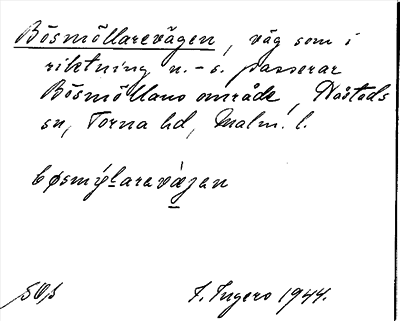 Bösmöllarevägen, väg som i
riktning n.-s. passerar
Bösmöllans område, Nöbbelövs
sn, Torna hd, Malm. l.
bøsmýlaravæjen
SOS
J. Ingers 1944.